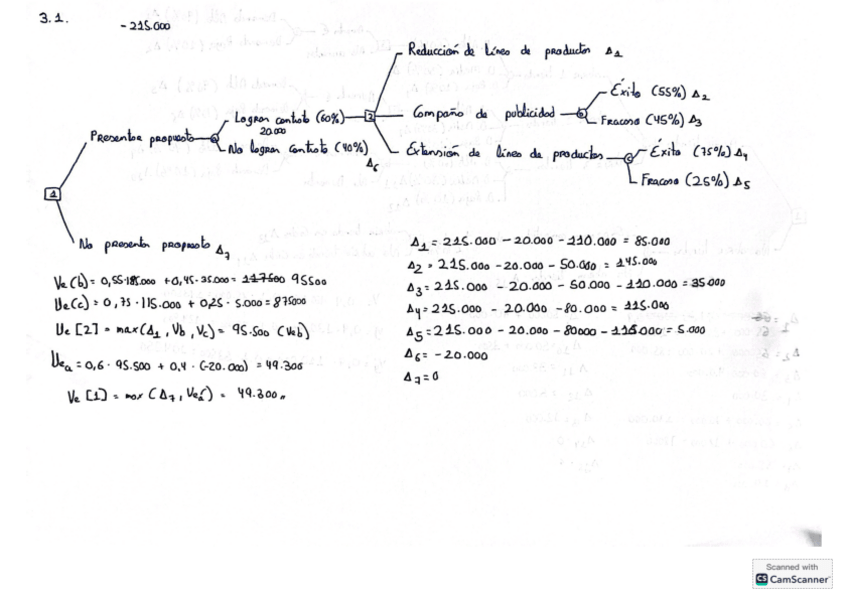 3.1.
-215.000
Reducción de línea de productos Δ1
Éxito (55%) Δ2
Lograr contrato (60%)
2
Campaña de publicidad
b
Fracaso (45%) Δ3
20.000
Presentar propuesta
a
No lograr contrato (40%)
Δ6
Extensión de línea de productos
c
Éxito (75%) Δ4
Fracaso (25%) Δ5
1
No presentar propuesta Δ7
Δ1 = 215.000 - 20.000 - 110.000 = 85.000
Δ2 = 215.000 - 20.000 - 50.000 = 145.000
Δ3 = 215.000 - 20.000 - 50.000 - 110.000 = 35.000
Δ4 = 215.000 - 20.000 - 80.000 = 115.000
Δ5 = 215.000 - 20.000 - 80000 - 110.000 = 5.000
Δ6 = -20.000
Δ7 = 0
Ve (b) = 0,55·145.000 + 0,45·35.000 = 117500 95500
Ve (c) = 0,75·115.000 + 0,25·5.000 = 875000
Ve [2] = max (Δ1, Vb, Vc) = 95.500 (Veb)
Vea = 0,6·95.500 + 0,4·(-20.000) = 49.300
Ve [1] = max (Δ7, Vea) = 49.300
Scanned with
CS CamScanner